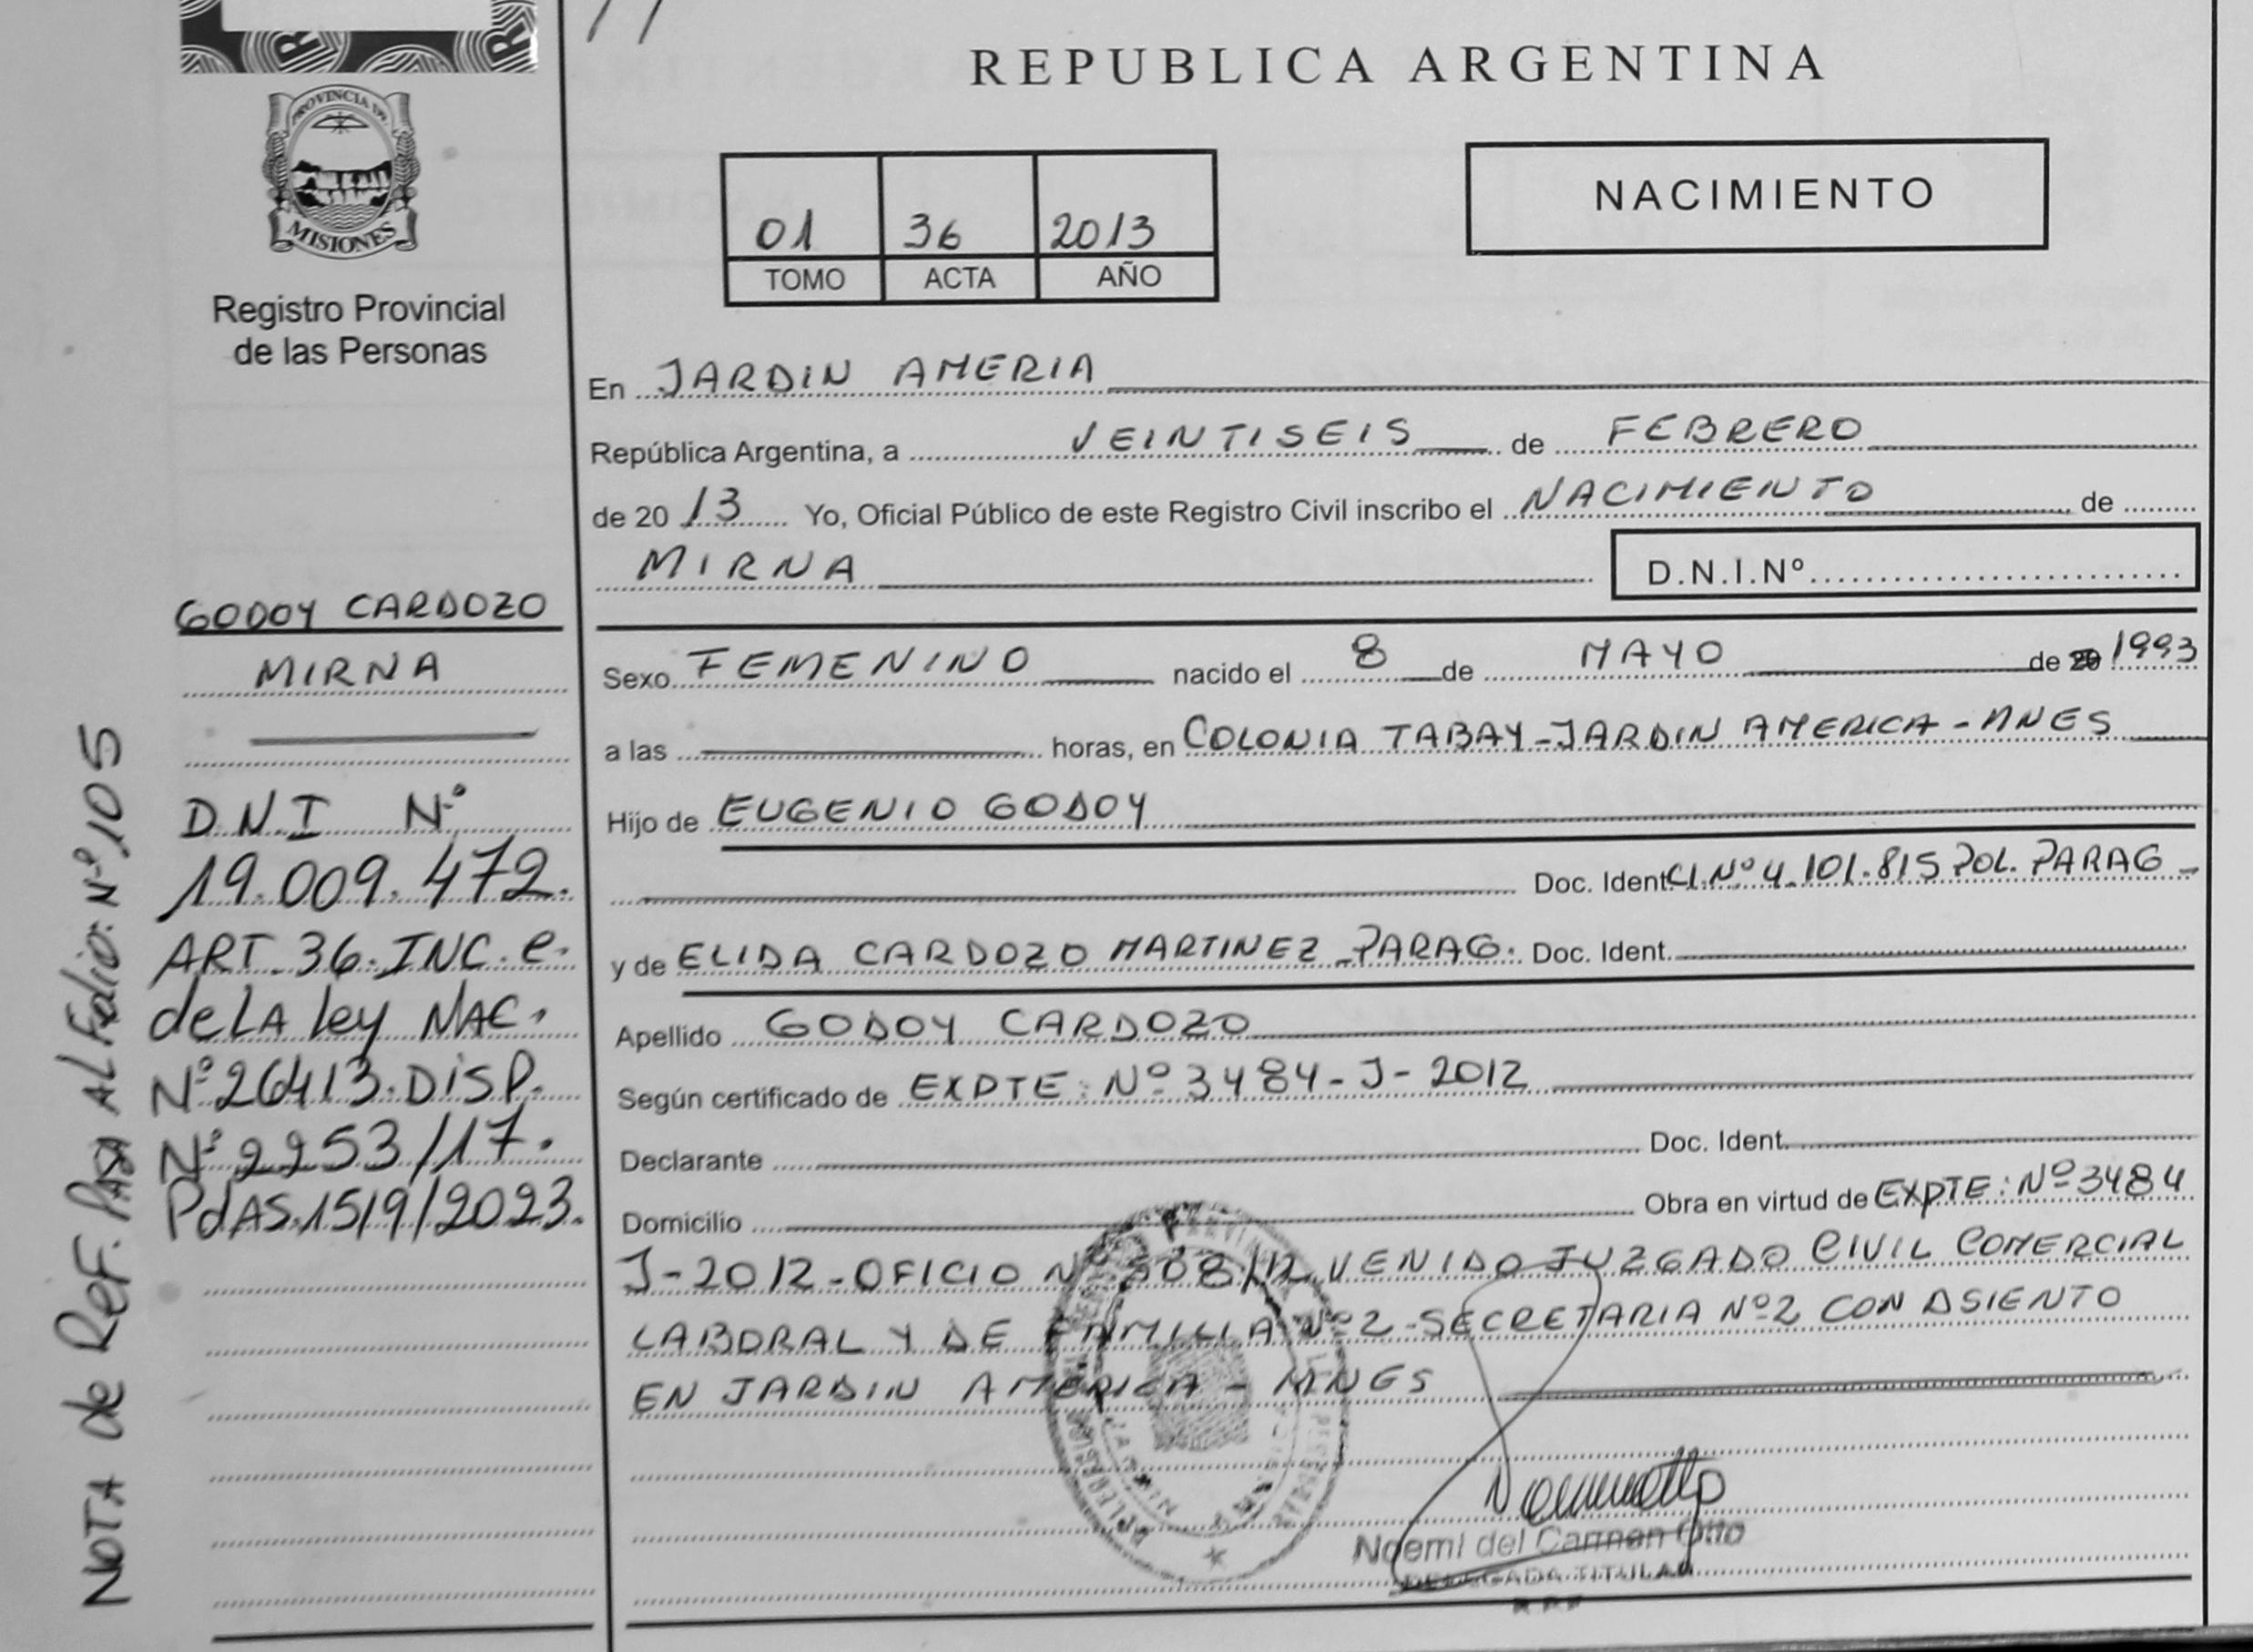 REPUBLICA ARGENTINA
PROVINCIA DE
MISIONES
Registro Provincial
de las Personas
01 36 2013
TOMO ACTA AÑO
NACIMIENTO
En JARDIN AMERIA
República Argentina, a VEINTISEIS de FEBRERO
de 20 13 Yo, Oficial Público de este Registro Civil inscribo el NACIMIENTO de
MIRNA D.N.I.Nº
Sexo FEMENINO nacido el 8 de MAYO de 20 1993
a las horas, en COLONIA TABAY-JARDIN AMERICA-MNES
Hijo de EUGENIO GODOY
Doc. Ident. CI.Nº 4.101.815 POL. PARAG
y de ELIDA CARDOZO MARTINEZ-PARAG. Doc. Ident.
Apellido GODOY CARDOZO
Según certificado de EXPTE: Nº 3484-J-2012
Declarante Doc. Ident.
Domicilio Obra en virtud de EXPTE: Nº 3484
J-2012-OFICIO Nº 508/12 VENIDO JUZGADO CIVIL COMERCIAL
LABORAL Y DE FAMILIA Nº2-SECRETARIA Nº2 CON ASIENTO
EN JARDIN AMERICA-MNES
Noemi del Carmen Otto
DELEGADA TITULAR
GODOY CARDOZO
MIRNA
D.N.I Nº
19.009.472.
ART. 36. INC. e.
de LA ley NAC.
Nº 26413. DISP.
Nº 2253/17.
PdAS. 15/9/2023.
NOTA de REF. PASA AL Folio: Nº 105